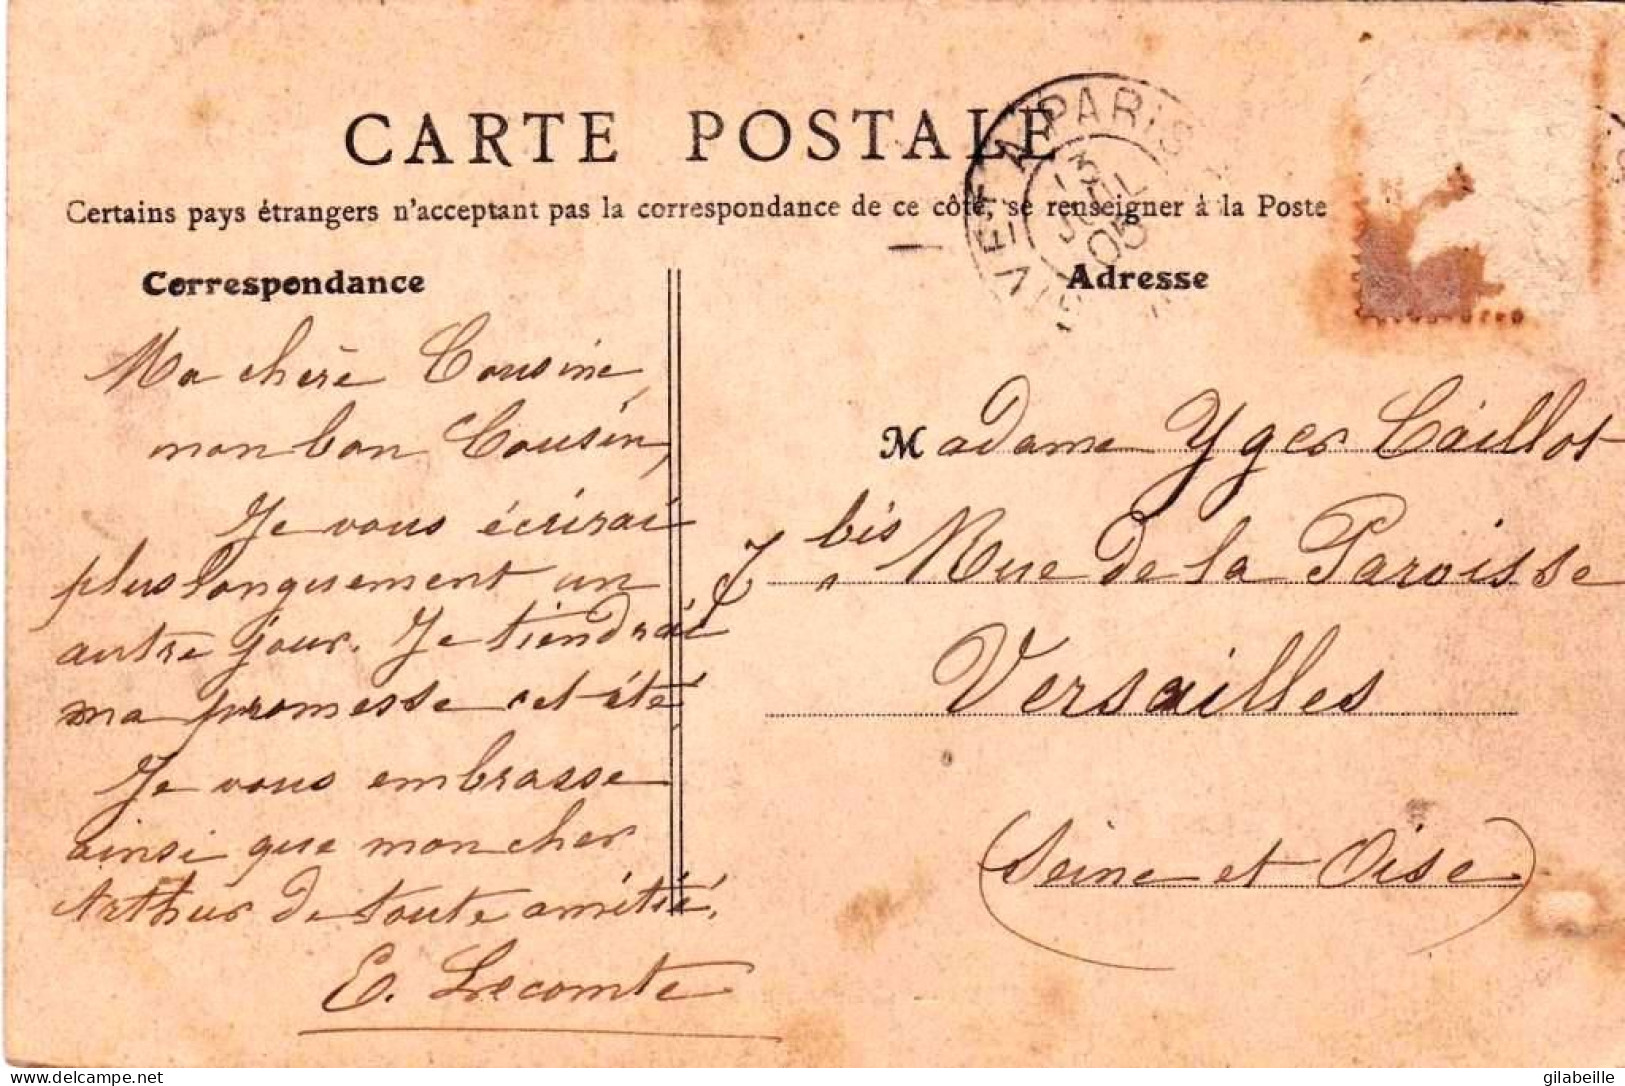 CARTE POSTALE
Certains pays étrangers n'acceptant pas la correspondance de ce côté, se renseigner à la Poste
Correspondance
Ma chère Cousine,
mon bon Cousin,
Je vous écrirai
plus longuement un
autre jour. Je tiendrai
ma promesse cet été.
Je vous embrasse
ainsi que mon cher
Arthur de toute amitié.
E. Lecomte
A PARIS
13
JUIL
05
Adresse
Madame Yger Caillot
7 bis Rue de la Paroisse
Versailles
(Seine et Oise)
delcampe.net
gilabeille